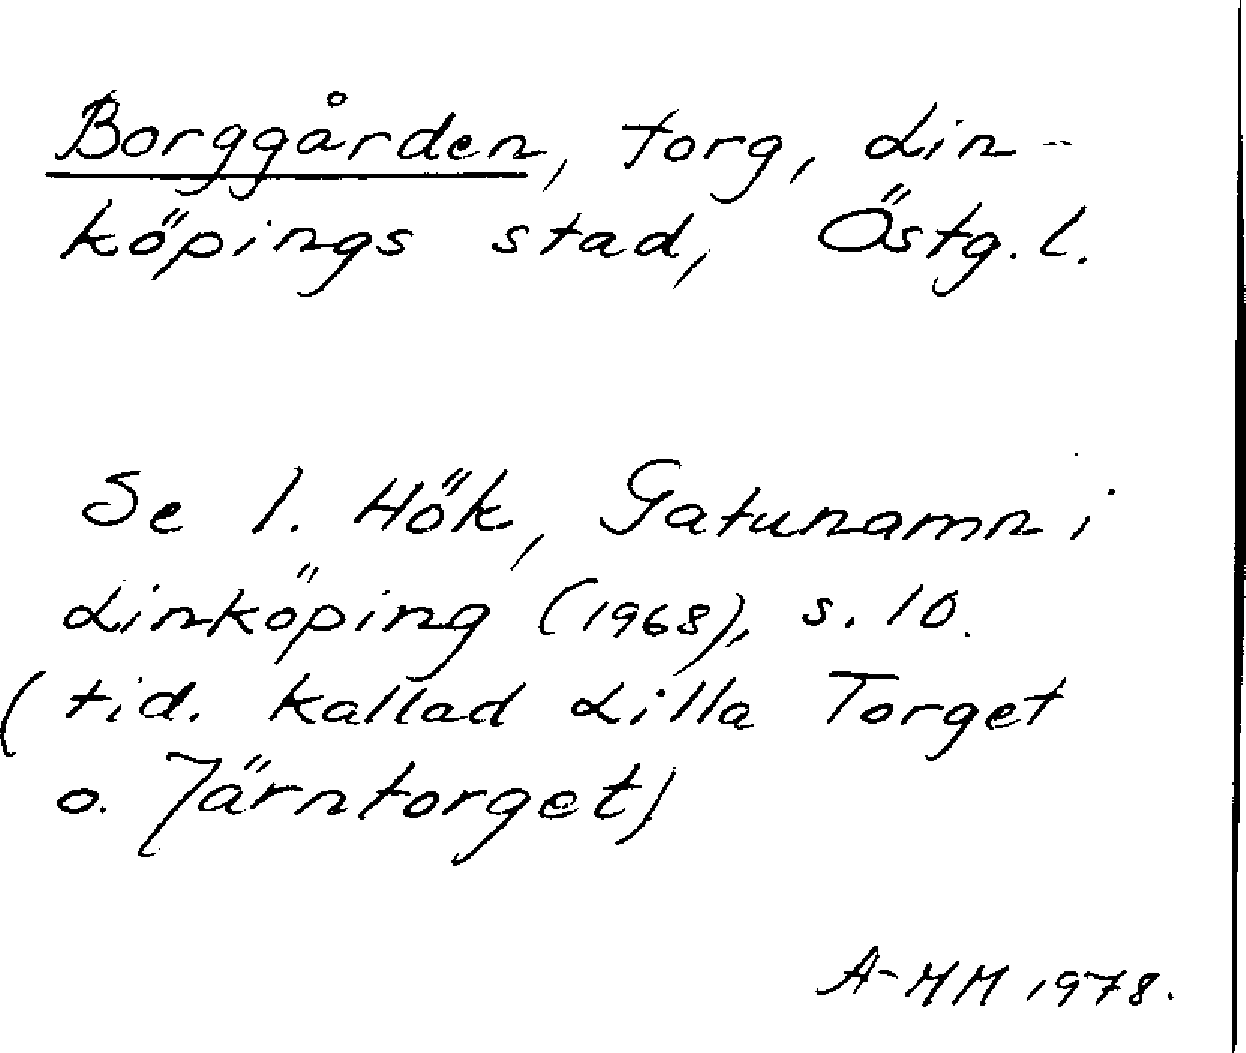 Borggården, torg, Lin-
köpings stad, Östg. l.
Se I. Hök, Gatunamn i
Linköping (1968), s. 10.
(tid. kallad Lilla Torget
o. Järntorget)
A-MM 1978.